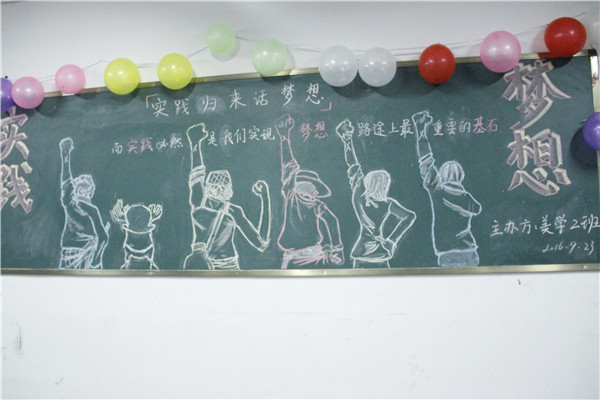 「实践归来话梦想」
而实践必然是我们实现梦想路途上最重要的基石
实践
梦想
主办方:美学2班
2016.9.23